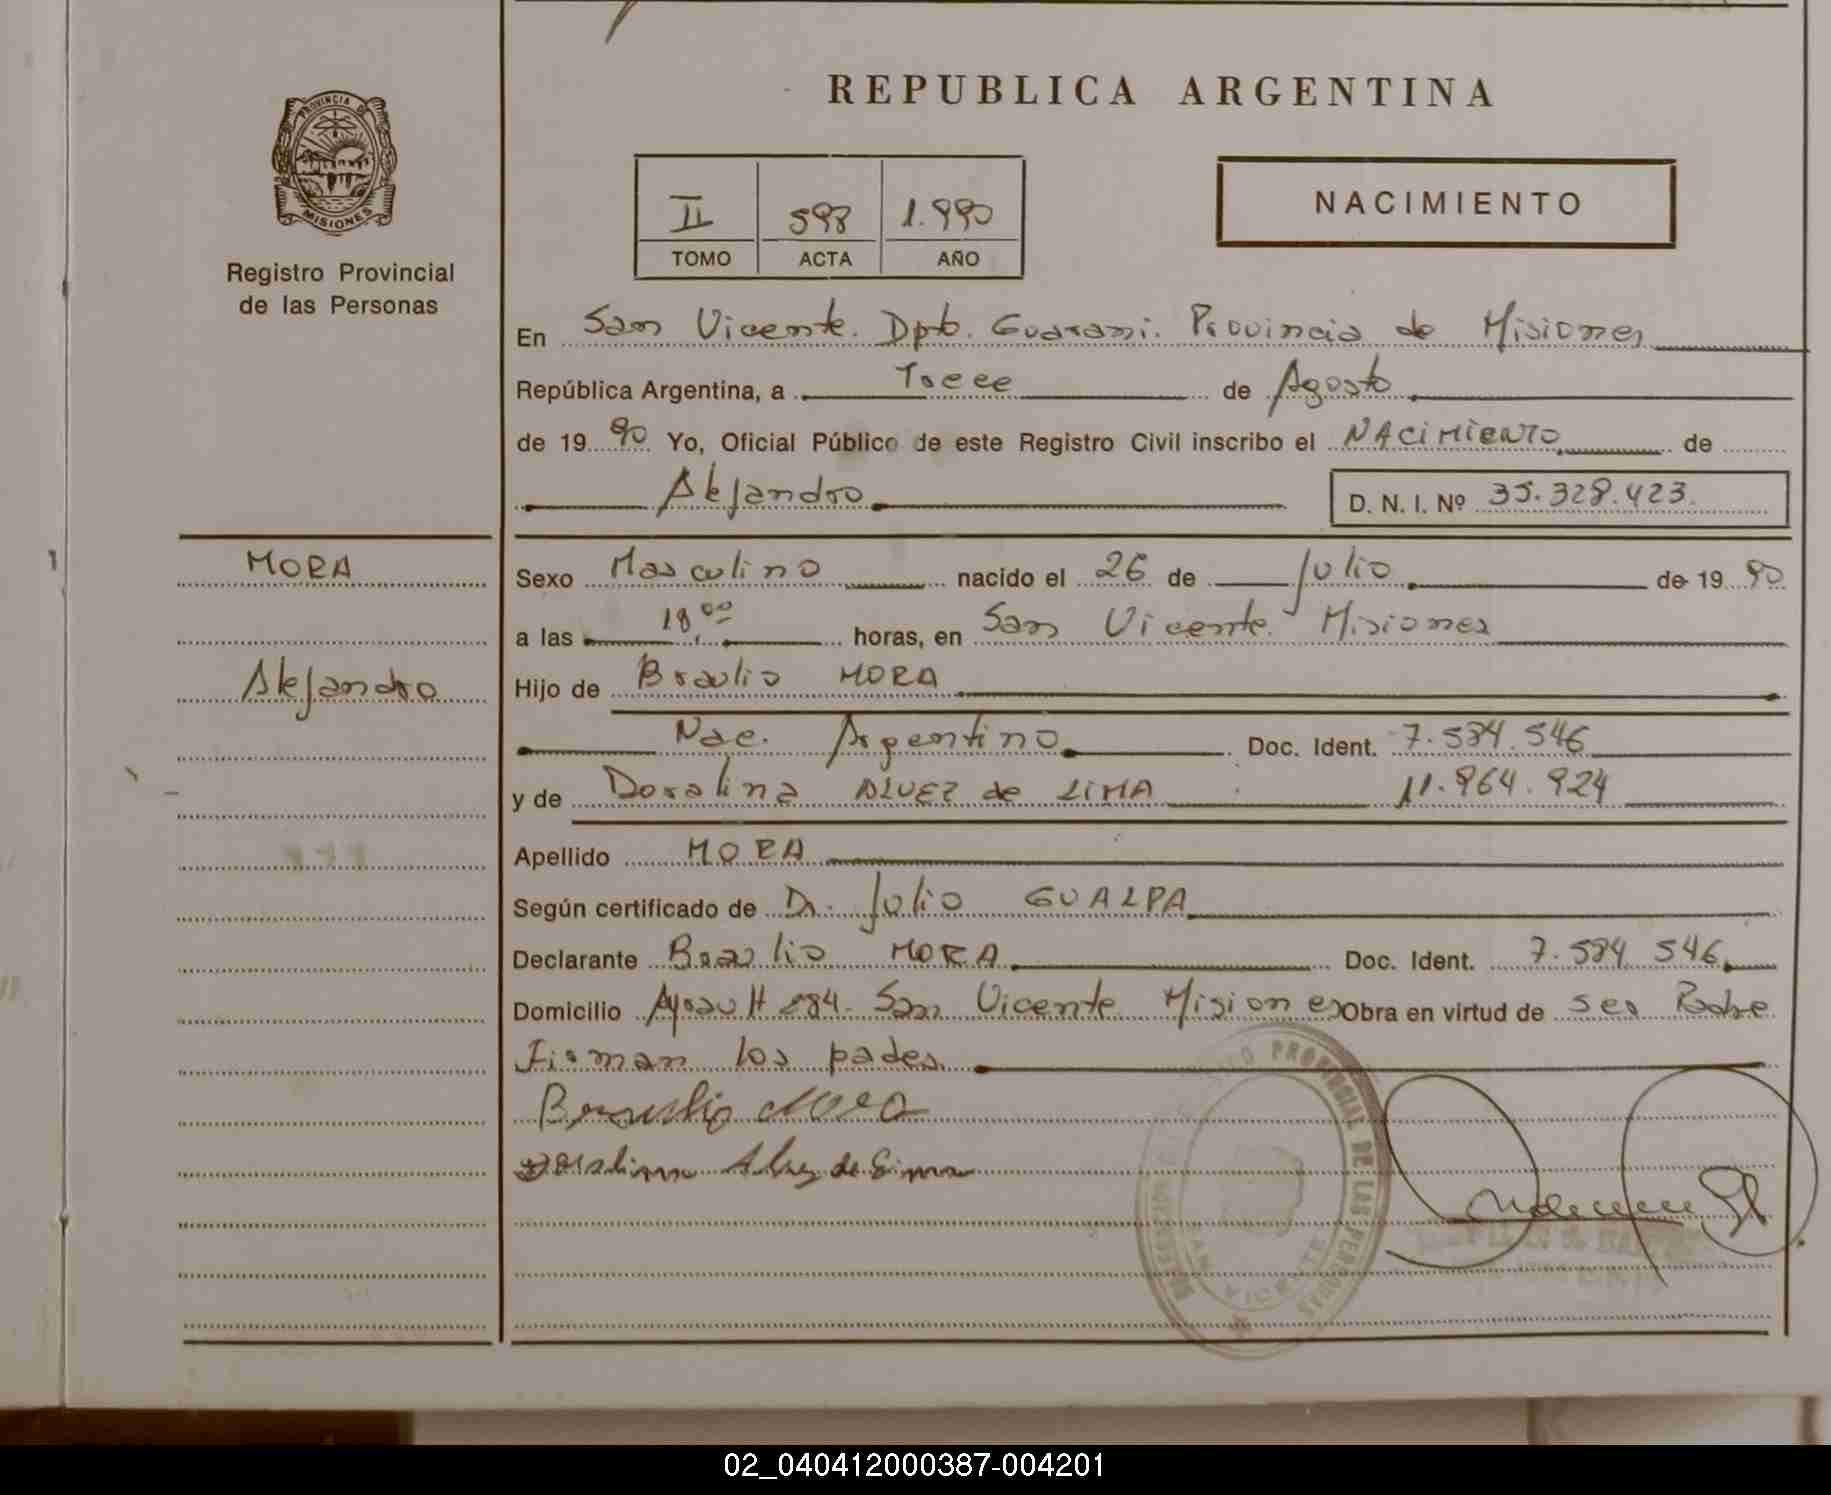 REPUBLICA ARGENTINA
PROVINCIA DE
MISIONES
Registro Provincial
de las Personas
II 598 1.990
TOMO ACTA AÑO
NACIMIENTO
En San Vicente. Dpto. Guarani. Provincia de Misiones
República Argentina, a Trece de Agosto
de 19 90 Yo, Oficial Público de este Registro Civil inscribo el NACIMIENTO de
Alejandro D. N. I. Nº 35.328.423.
MORA
Sexo Masculino nacido el 26 de Julio de 19 90
a las 18 00 horas, en San Vicente. Misiones
Alejandro
Hijo de Braulio MORA
Nac. Argentino Doc. Ident. 7.584.546
y de Doralina ALVEZ de LIMA 11.964.924
Apellido MORA
Según certificado de Dr. Julio GUALPA
Declarante Braulio MORA Doc. Ident. 7.584 546
Domicilio San Vicente Misiones Obra en virtud de ser Padre
Firman los pades
Braulio Mora
Doralina Alvez de Lima
PROVINCIAL DE LAS PERSONAS
SAN VICENTE
02_040412000387-004201